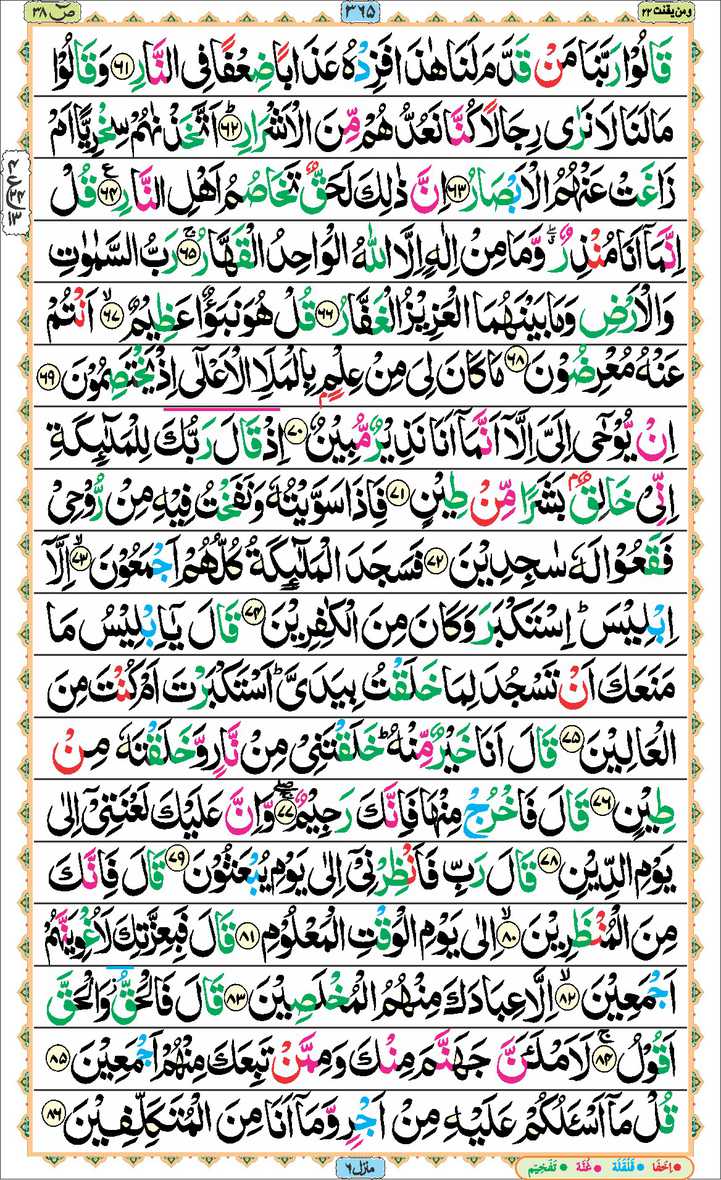 ومن يقنت ٢٣
٣٦٥
صٓ ٣٨
قَالُوْا رَبَّنَا مَنْ قَدَّمَ لَنَا هٰذَا فَزِدْهُ عَذَابًا ضِعْفًا فِی النَّارِ ﴿۶۱﴾ وَقَالُوْا
مَا لَنَا لَا نَرٰى رِجَالًا كُنَّا نَعُدُّهُمْ مِّنَ الْاَشْرَارِ ؕ ﴿۶۲﴾ اَتَّخَذْنٰهُمْ سِخْرِيًّا اَمْ
زَاغَتْ عَنْهُمُ الْاَبْصَارُ ﴿۶۳﴾ اِنَّ ذٰلِكَ لَحَقٌّ تَخَاصُمُ اَهْلِ النَّارِ ﴿۶۴﴾ ع قُلْ
اِنَّمَاۤ اَنَا مُنْذِرٌ ۖ وَّمَا مِنْ اِلٰهٍ اِلَّا اللّٰهُ الْوَاحِدُ الْقَهَّارُ ۚ ﴿۶۵﴾ رَبُّ السَّمٰوٰتِ
وَالْاَرْضِ وَمَا بَيْنَهُمَا الْعَزِيْزُ الْغَفَّارُ ﴿۶۶﴾ قُلْ هُوَ نَبَؤٌا عَظِيْمٌ ۙ ﴿۶۷﴾ اَنْتُمْ
عَنْهُ مُعْرِضُوْنَ ﴿۶۸﴾ مَا كَانَ لِیَ مِنْ عِلْمٍۭ بِالْمَلَاِ الْاَعْلٰٓى اِذْ يَخْتَصِمُوْنَ ﴿۶۹﴾
اِنْ يُّوْحٰٓى اِلَیَّ اِلَّاۤ اَنَّمَاۤ اَنَا نَذِيْرٌ مُّبِيْنٌ ﴿۷۰﴾ اِذْ قَالَ رَبُّكَ لِلْمَلٰٓئِكَةِ
اِنِّیْ خَالِقٌۢ بَشَرًا مِّنْ طِيْنٍ ﴿۷۱﴾ فَاِذَا سَوَّيْتُهٗ وَنَفَخْتُ فِيْهِ مِنْ رُّوْحِیْ
فَقَعُوْا لَهٗ سٰجِدِيْنَ ﴿۷۲﴾ فَسَجَدَ الْمَلٰٓئِكَةُ كُلُّهُمْ اَجْمَعُوْنَ ۙ ﴿۷۳﴾ اِلَّاۤ
اِبْلِيْسَ ؕ اِسْتَكْبَرَ وَكَانَ مِنَ الْكٰفِرِيْنَ ﴿۷۴﴾ قَالَ يٰۤاِبْلِيْسُ مَا
مَنَعَكَ اَنْ تَسْجُدَ لِمَا خَلَقْتُ بِيَدَیَّ ؕ اَسْتَكْبَرْتَ اَمْ كُنْتَ مِنَ
الْعَالِيْنَ ﴿۷۵﴾ قَالَ اَنَا خَيْرٌ مِّنْهُ ؕ خَلَقْتَنِیْ مِنْ نَّارٍ وَّخَلَقْتَهٗ مِنْ
طِيْنٍ ﴿۷۶﴾ قَالَ فَاخْرُجْ مِنْهَا فَاِنَّكَ رَجِيْمٌ ۚۖ ﴿۷۷﴾ وَّاِنَّ عَلَيْكَ لَعْنَتِیْۤ اِلٰى
يَوْمِ الدِّيْنِ ﴿۷۸﴾ قَالَ رَبِّ فَاَنْظِرْنِیْۤ اِلٰى يَوْمِ يُبْعَثُوْنَ ﴿۷۹﴾ قَالَ فَاِنَّكَ
مِنَ الْمُنْظَرِيْنَ ۙ ﴿۸۰﴾ اِلٰى يَوْمِ الْوَقْتِ الْمَعْلُوْمِ ﴿۸۱﴾ قَالَ فَبِعِزَّتِكَ لَاُغْوِيَنَّهُمْ
اَجْمَعِيْنَ ۙ ﴿۸۲﴾ اِلَّا عِبَادَكَ مِنْهُمُ الْمُخْلَصِيْنَ ﴿۸۳﴾ قَالَ فَالْحَقُّ ؗ وَالْحَقَّ
اَقُوْلُ ۚ ﴿۸۴﴾ لَاَمْلَـَٔنَّ جَهَنَّمَ مِنْكَ وَمِمَّنْ تَبِعَكَ مِنْهُمْ اَجْمَعِيْنَ ﴿۸۵﴾
قُلْ مَاۤ اَسْـَٔلُكُمْ عَلَيْهِ مِنْ اَجْرٍ وَّمَاۤ اَنَا مِنَ الْمُتَكَلِّفِيْنَ ﴿۸۶﴾
منزل ٦
اِخفَا قَلْقَلَه غُنَّه تَفْخِيْم